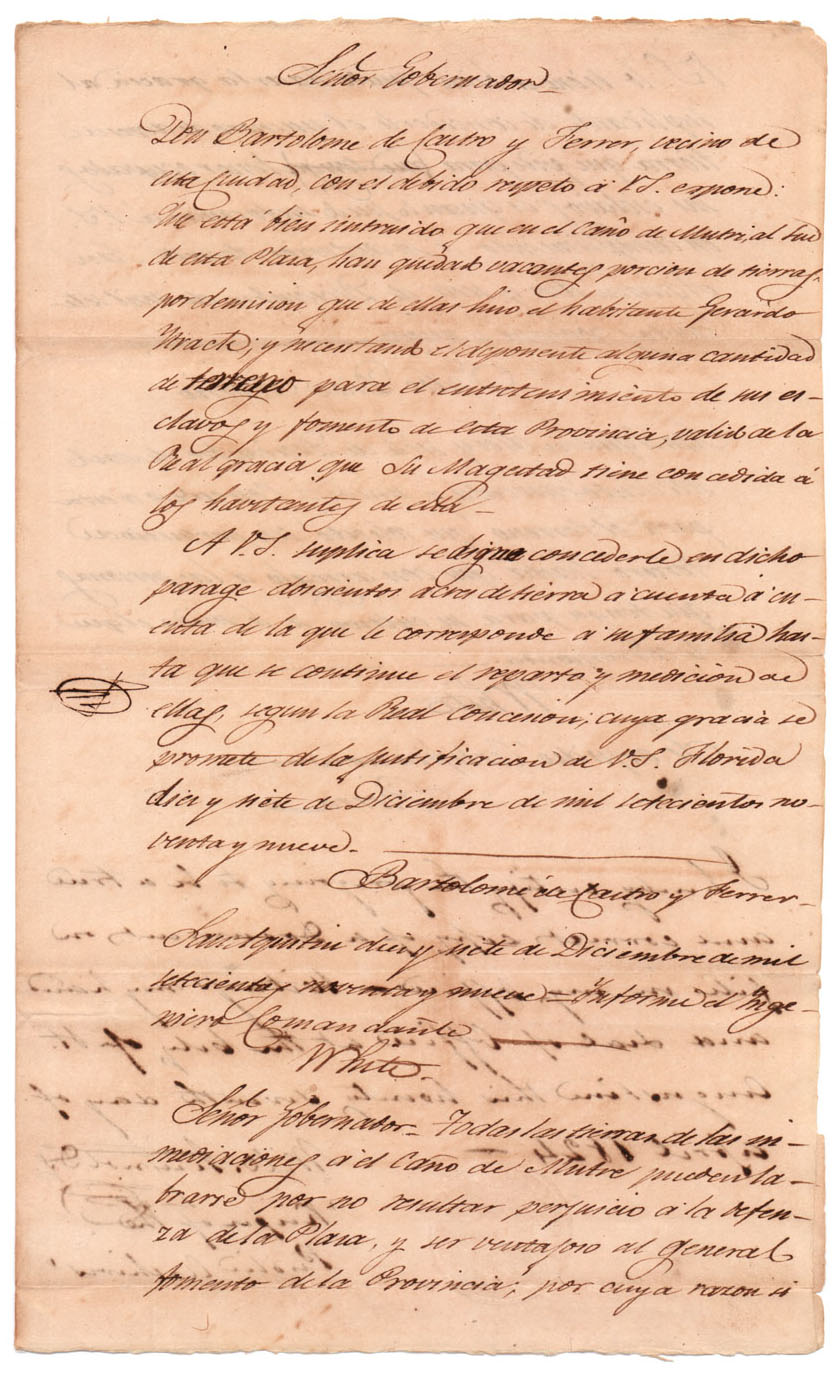 Señor Gobernador
Don Bartolome de Castro y Ferrer, vecino de
esta Ciudad, con el debido respeto á V.S. expone:
Que está bien instruido que en el Caño de Mutri, al sud
de esta Plasa, han quedado vacantes porcion de tierras,
por demision que de ellas hiso el habitante Gerardo
y necesitando el deponente alguna cantidad
de terreno para el entretenimiento de sus es-
clavos y fomento de esta Provincia, valido de la
Real gracia que Su Magestad tiene concedida á
los havitantes de ella—
A V.S. suplica se digne concederle en dicho
parage doscientos acres de tierra á cuenta á cu-
enta de la que le corresponde á su familia has-
ta que se continue el reparto y medicion de
ellas, segun la Real Concesion; cuya gracia se
promete de la justificacion de V.S. Florida
dies y siete de Diciembre de mil setecientos no-
venta y nueve.
Bartolomé de Castro y Ferrer—
San Agustin dies y siete de Diciembre de mil
setecientos noventa y nueve = Informe el Inge-
niero Comandante
White.
Señor Gobernador— Todas las tierras de las in-
mediaciones á el Caño de Mutre pueden la-
brarse por no resultar perjuicio á la defen-
za de la Plasa, y ser ventajoso al general
fomento de la Provincia; por cuya razon si